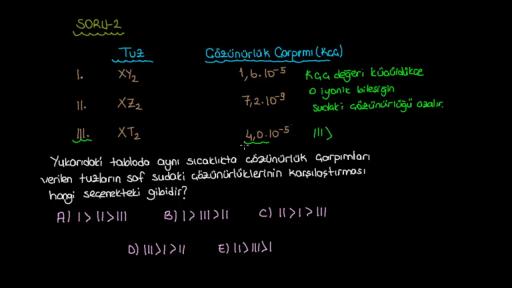 SORU-2
Tuz Çözünürlük Çarpımı (Kçç)
I. XY₂ 1,6.10⁻⁵ Kçç değeri küçüldükçe
o iyonik bileşiğin
II. XZ₂ 7,2.10⁻⁹ sudaki çözünürlüğü azalır.
III. XT₂ 4,0.10⁻⁵ III>
Yukarıdaki tabloda aynı sıcaklıkta çözünürlük çarpımları
verilen tuzların saf sudaki çözünürlüklerinin karşılaştırması
hangi seçenekteki gibidir?
A) I > II > III B) I > III > II C) II > I > III
D) III > I > II E) II > III > I